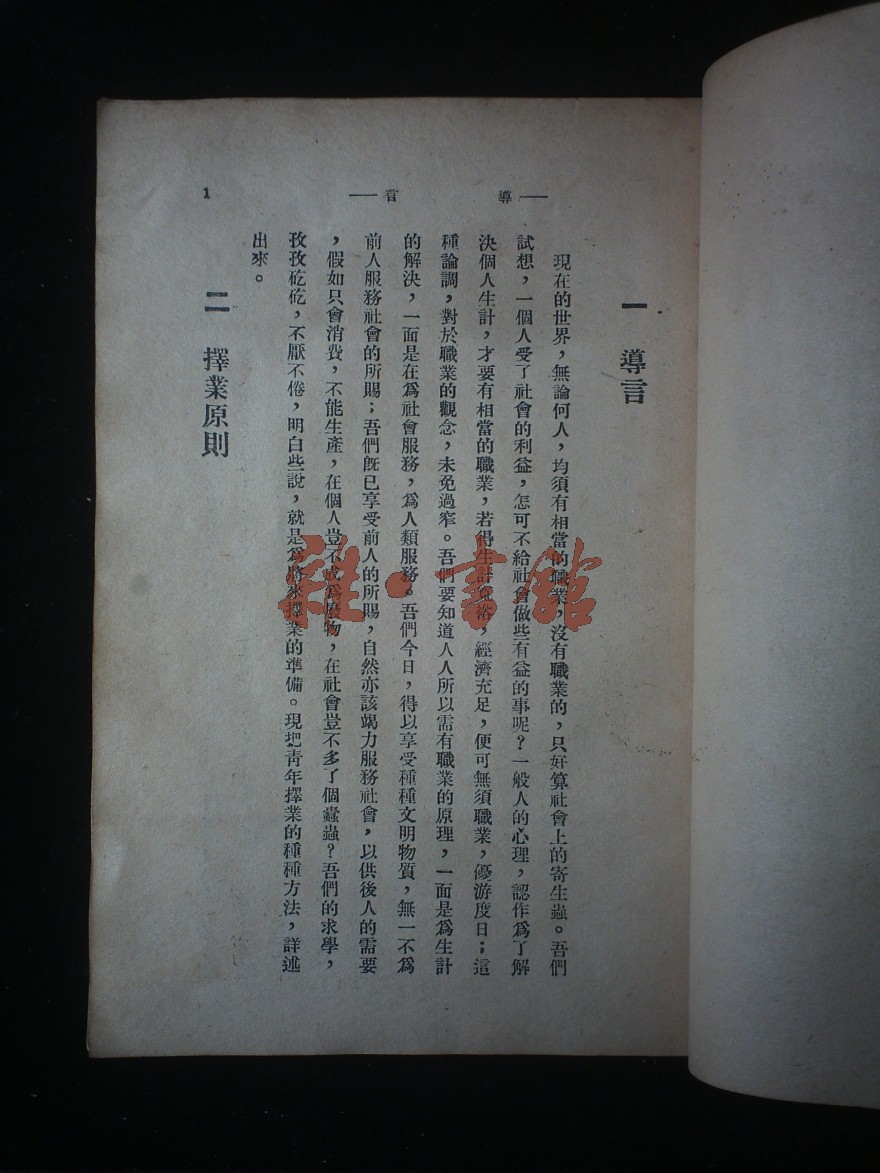 導言
1
一 導言
現在的世界，無論何人，均須有相當的職業，沒有職業的，只好算社會上的寄生蟲。吾們
試想，一個人受了社會的利益，怎可不給社會做些有益的事呢？一般人的心理，認作爲了解
決個人生計，才要有相當的職業，若得生計寬裕，經濟充足，便可無須職業，優游度日；這
種論調，對於職業的觀念，未免過窄。吾們要知道人人所以需有職業的原理，一面是爲生計
的解決，一面是在爲社會服務，爲人類服務。吾們今日，得以享受種種文明物質，無一不爲
前人服務社會的所賜；吾們既已享受前人的所賜，自然亦該竭力服務社會，以供後人的需要
，假如只會消費，不能生產，在個人豈不成爲廢物，在社會豈不多了個蠹蟲？吾們的求學，
孜孜矻矻，不厭不倦，明白些說，就是爲將來擇業的準備。現把靑年擇業的種種方法，詳述
出來。
二 擇業原則
雜·書館